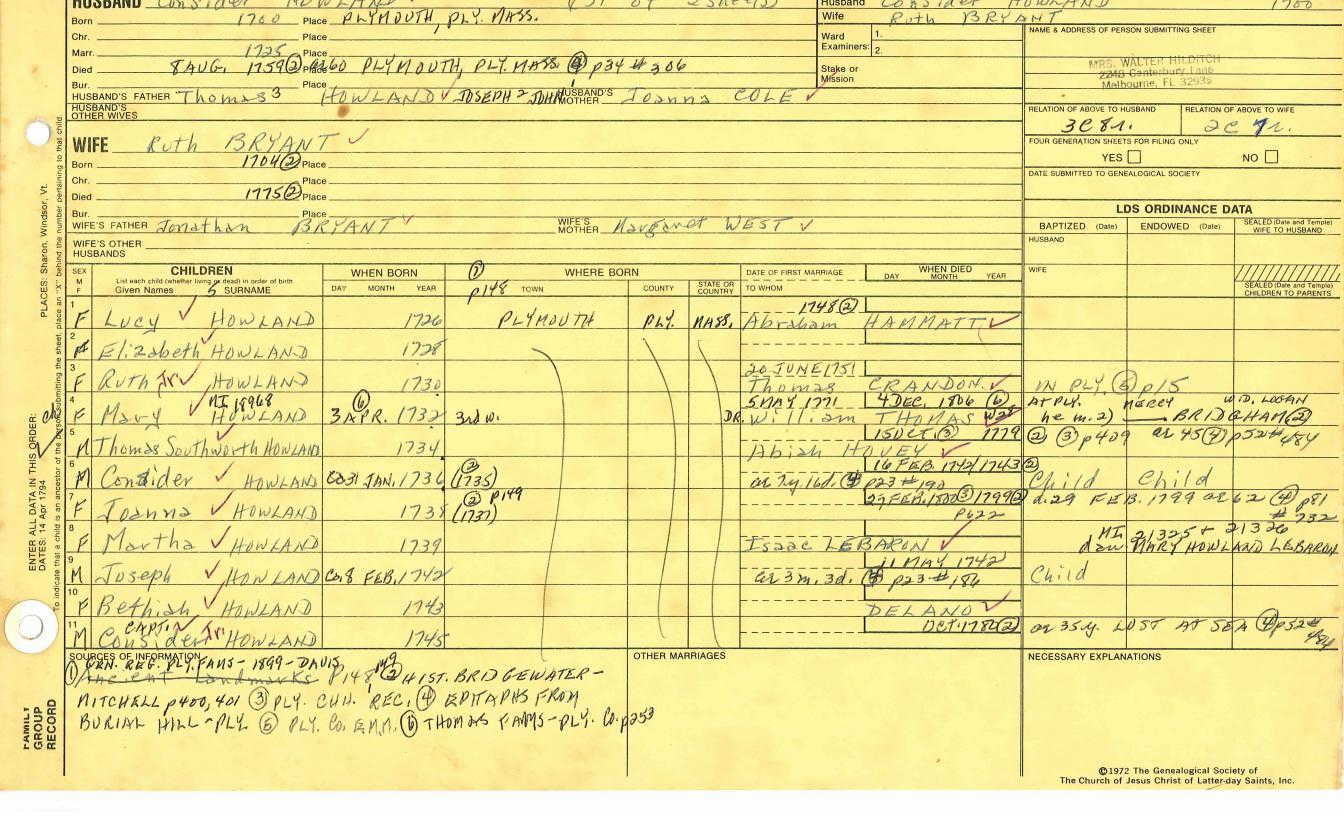 HUSBAND Consider HOWLAND
Husband Consider HOWLAND 1700
Born 1700 Place PLYMOUTH, PLY. MASS.
Wife Ruth BRYANT
Chr. Place
Ward Examiners: 1. 2.
Marr. 1725 Place
Died 8 AUG. 1759 ② Place 1760 PLYMOUTH, PLY. MASS. ④ p34 # 306
Stake or Mission
Bur. Place
HUSBAND'S FATHER Thomas 3 HOWLAND JOSEPH 2 JOHN HUSBAND'S MOTHER Joanna COLE
HUSBAND'S OTHER WIVES
NAME & ADDRESS OF PERSON SUBMITTING SHEET
MRS. WALTER HILDITCH
2248 Canterbury Lane
Melbourne, FL 32935
RELATION OF ABOVE TO HUSBAND RELATION OF ABOVE TO WIFE
3C 8r. 2C 7r.
FOUR GENERATION SHEETS FOR FILING ONLY
YES NO
DATE SUBMITTED TO GENEALOGICAL SOCIETY
WIFE Ruth BRYANT
Born 1704 ② Place
Chr. Place
Died 1775 ② Place
Bur. Place
WIFE'S FATHER Jonathan BRYANT WIFE'S MOTHER Margaret WEST
WIFE'S OTHER HUSBANDS
LDS ORDINANCE DATA
BAPTIZED (Date) ENDOWED (Date) SEALED (Date and Temple) WIFE TO HUSBAND
HUSBAND
WIFE
SEALED (Date and Temple) CHILDREN TO PARENTS
SEX M F CHILDREN WHEN BORN ① p148 WHERE BORN DATE OF FIRST MARRIAGE WHEN DIED
List each child (whether living or dead) in order of birth
Given Names 5 SURNAME DAY MONTH YEAR TOWN COUNTY STATE OR COUNTRY TO WHOM DAY MONTH YEAR
1 1748 ②
F Lucy HOWLAND 1726 PLYMOUTH PLY. MASS. Abraham HAMMATT
2
F Elizabeth HOWLAND 1728
3 20 JUNE 1751
F Ruth Jr. HOWLAND 1730 Thomas CRANDON IN PLY. ⑤ p15
4 NI 18968 ⑥ 5 MAY 1771 4 DEC. 1806 ⑥ AT PLY. MERCY W.D. LOGAN
F Mary HOWLAND 3 APR. 1732 3rd w. DR. William THOMAS he m. 2) BRIDGHAM ②
5 15 OCT. ③ 1779 ② ③ p409 ④ p52 # 484
M Thomas Southworth HOWLAND 1734 Abiah HOVEY
6 ② 16 FEB. 1742/1743 ②
M Consider HOWLAND 31 JAN. 1736 (1735) p23 # 190 Child Child
7 ② p149 27 FEB. 1800 ③ 1799 ② d. 29 FEB. 1799 ④ p81 # 732
F Joanna HOWLAND 1738 (1737) p622
8 NI 21325 + 21326
F Martha HOWLAND 1739 Isaac LEBARON dau MARY HOWLAND LEBARON
9 11 MAY 1742
M Joseph HOWLAND 8 FEB. 1742 3 m. 3 d. p23 # 186 Child
10
F Bethiah HOWLAND 1743 DELANO
11 CAPT. OCT. 1780 ② 35 y. LOST AT SEA ④ p52 # 484
M Consider Jr. HOWLAND 1745
SOURCES OF INFORMATION
OTHER MARRIAGES
NECESSARY EXPLANATIONS
GEN. REG. PLY. FAMS - 1899 - DAVIS
① Ancient Landmarks p148, 149 ② HIST. BRIDGEWATER -
MITCHELL p400, 401 ③ PLY. CHH. REC. ④ EPITAPHS FROM
BURIAL HILL - PLY. ⑤ PLY. Co. ⑥ THOMAS FAMS - PLY. Co. p253
©1972 The Genealogical Society of
The Church of Jesus Christ of Latter-day Saints, Inc.
FAMILY GROUP RECORD
ENTER ALL DATA IN THIS ORDER:
DATES: 14 Apr 1794
PLACES: Sharon, Windsor, Vt.
To indicate that a child is an ancestor of the person submitting the sheet, place an "X" behind the number pertaining to that child.